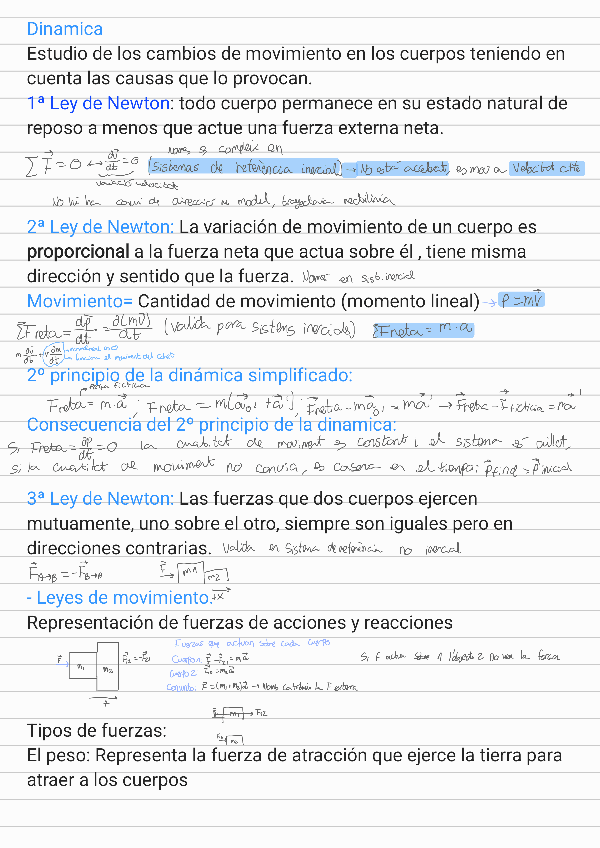 Dinamica
Estudio de los cambios de movimiento en los cuerpos teniendo en
cuenta las causas que lo provocan.
1ª Ley de Newton: todo cuerpo permanece en su estado natural de
reposo a menos que actue una fuerza externa neta.
només es compleix en
∑F⃗ = 0 ↔ dv⃗/dt = 0 (sistemas de referència inercial) → No està accelerat, es mou a Velocitat cte
variació velocitat
No hi ha canvi de direcció ni mòdul, trajectòria rectilínia
2ª Ley de Newton: La variación de movimiento de un cuerpo es
proporcional a la fuerza neta que actua sobre él , tiene misma
dirección y sentido que la fuerza. Només en sist. inercial
Movimiento= Cantidad de movimiento (momento lineal) → P = mv⃗
∑F⃗neta = dp⃗/dt = d(mv)/dt (valida para sistems inercials) ∑Fneta = m·a
2º principio de la dinámica simplificado:
Força fictícia
Fneta = m·a⃗ ; Fneta = m(a⃗o' + a⃗') ; F⃗neta - ma⃗o' = ma⃗' → F⃗neta - F⃗ficticia = ma⃗'
Consecuencia del 2º principio de la dinamica:
Si Fneta = dp/dt = 0 la quantitat de moviment es constant i el sistema es aïllat,
si la quantitat de moviment no canvia, es conserva en el temps: P⃗final = P⃗inicial
3ª Ley de Newton: Las fuerzas que dos cuerpos ejercen
mutuamente, uno sobre el otro, siempre son iguales pero en
direcciones contrarias. Valida en Sistema de referència no inercial
F⃗A→B = -F⃗B→A F m1 m2
- Leyes de movimiento: +x
Representación de fuerzas de acciones y reacciones
Fuerzas que actuan sobre cada cuerpo
F m1 m2
Cuerpo 2
Conjunto: F⃗ = (m1+m2)a⃗ → Només
Si F actua sobre 1 la força
m1 F12
m2
Tipos de fuerzas:
El peso: Representa la fuerza de atracción que ejerce la tierra para
atraer a los cuerpos